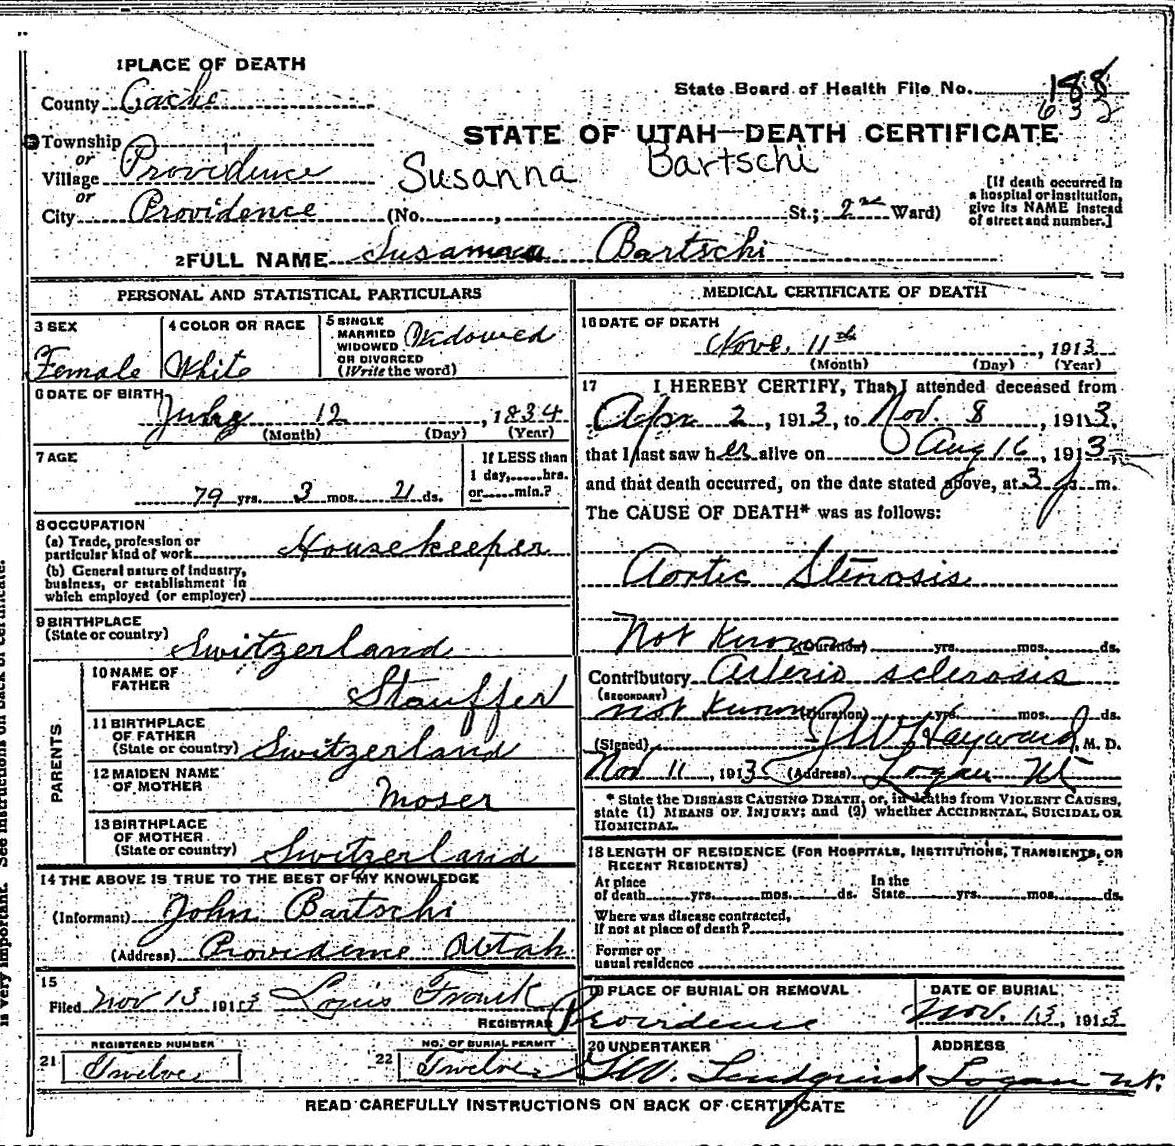 1 PLACE OF DEATH
County Cache
State Board of Health File No. 188
632
STATE OF UTAH—DEATH CERTIFICATE
Township
or
Village Providence
or
City Providence (No. , St.; 2nd Ward)
Susanna Bartschi
[If death occurred in
a hospital or institution,
give its NAME instead
of street and number.]
2 FULL NAME Susanna Bartschi
PERSONAL AND STATISTICAL PARTICULARS
3 SEX
Female
4 COLOR OR RACE
White
5 SINGLE
MARRIED
WIDOWED
OR DIVORCED
(Write the word)
Widowed
6 DATE OF BIRTH
July 12, 1834
(Month) (Day) (Year)
7 AGE
79 yrs. 3 mos. 21 ds.
If LESS than
1 day, hrs.
or min.?
8 OCCUPATION
(a) Trade, profession or
particular kind of work Housekeeper
(b) General nature of industry,
business, or establishment in
which employed (or employer)
9 BIRTHPLACE
(State or country) Switzerland
PARENTS
10 NAME OF
FATHER Stauffer
11 BIRTHPLACE
OF FATHER
(State or country) Switzerland
12 MAIDEN NAME
OF MOTHER Moser
13 BIRTHPLACE
OF MOTHER
(State or country) Switzerland
14 THE ABOVE IS TRUE TO THE BEST OF MY KNOWLEDGE
(Informant) John Bartschi
(Address) Providence Utah
15
Filed Nov 13 1913 Louis
REGISTRAR
REGISTERED NUMBER
21 Twelve
NO. OF BURIAL PERMIT
22 Twelve
MEDICAL CERTIFICATE OF DEATH
16 DATE OF DEATH
Nov. 11th, 1913
(Month) (Day) (Year)
17 I HEREBY CERTIFY, That I attended deceased from
Apr 2, 1913, to Nov. 8, 1913,
that I last saw her alive on Aug 16, 1913,
and that death occurred, on the date stated above, at 3 p. m.
The CAUSE OF DEATH* was as follows:
Aortic Stenosis
Not Known (Duration) yrs. mos. ds.
Contributory Arterio sclerosis
(SECONDARY)
not Known (Duration) yrs. mos. ds.
(Signed) Hayward, M. D.
Nov 11, 1913 (Address) Logan Ut
* State the DISEASE CAUSING DEATH, or, in deaths from VIOLENT CAUSES,
state (1) MEANS OF INJURY; and (2) whether ACCIDENTAL, SUICIDAL OR
HOMICIDAL.
18 LENGTH OF RESIDENCE (FOR HOSPITALS, INSTITUTIONS, TRANSIENTS, OR
RECENT RESIDENTS)
At place
of death yrs. mos. ds.
In the
State yrs. mos. ds.
Where was disease contracted,
if not at place of death?
Former or
usual residence
19 PLACE OF BURIAL OR REMOVAL
Providence
DATE OF BURIAL
Nov. 13, 1913
20 UNDERTAKER
Lundquist
ADDRESS
Logan Ut.
READ CAREFULLY INSTRUCTIONS ON BACK OF CERTIFICATE
is very important. See instructions on back of certificate.